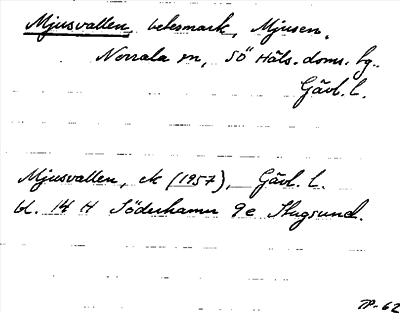 Mjusvallen, betesmark, Mjusen,
Norrala sn, Sö Häls. doms. fg..
Gävl. l.
Mjusvallen, ek (1957), Gävl. l.
bl. 14 H Söderhamn 9e Stugsund.
TP-62